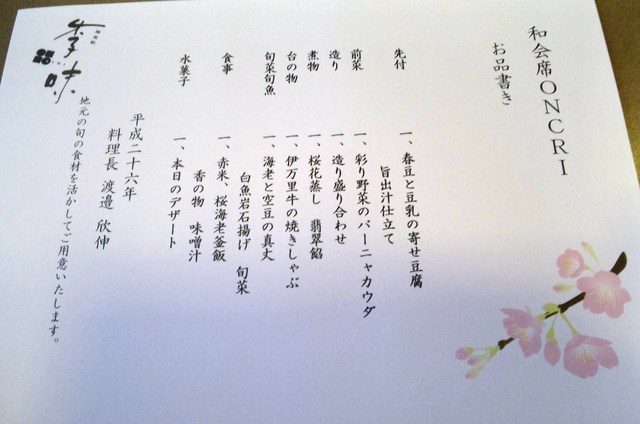 和会席ONCRI
お品書き
先付
一、春豆と豆乳の寄せ豆腐
旨出汁仕立て
前菜
一、彩り野菜のバーニャカウダ
造り
一、造り盛り合わせ
煮物
一、桜花蒸し 翡翠餡
台の物
一、伊万里牛の焼きしゃぶ
旬菜旬魚
一、海老と空豆の真丈
白魚岩石揚げ 旬菜
食事
一、赤米、桜海老釜飯
香の物 味噌汁
水菓子
一、本日のデザート
平成二十六年
料理長 渡邉 欣伸
地元の旬の食材を活かしてご用意いたします。
季味